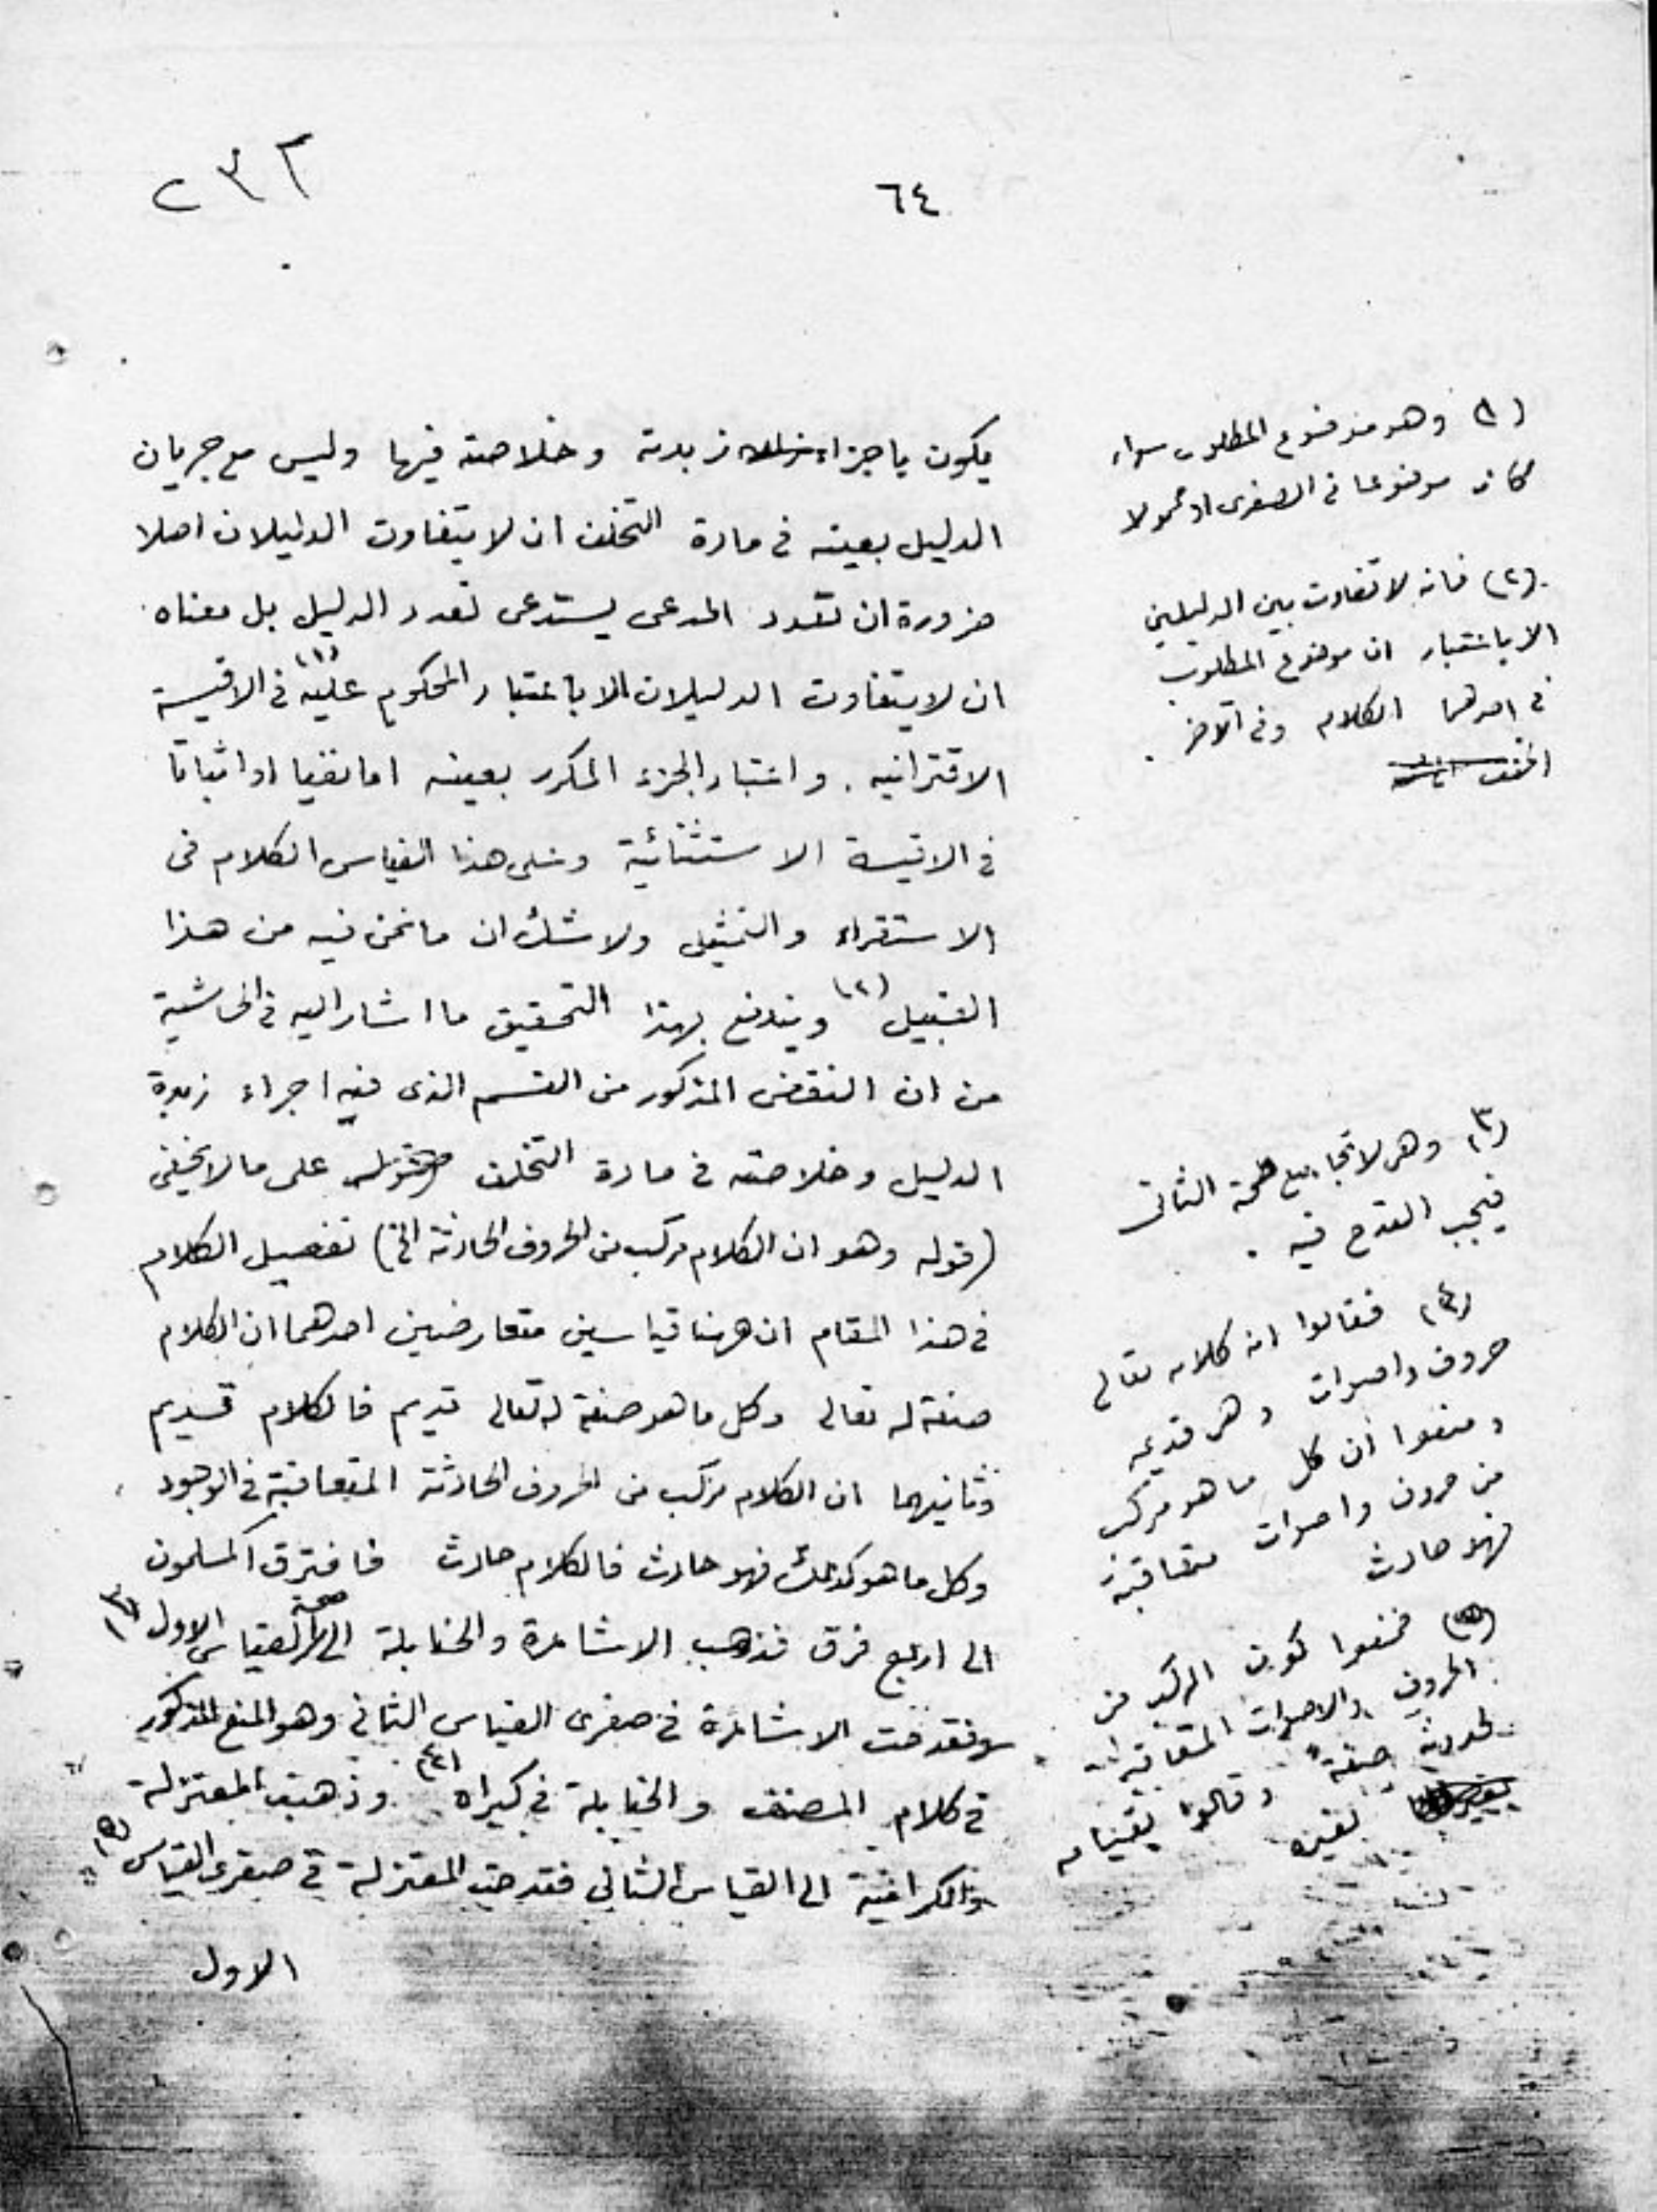 ٢٣٢
٦٤
يكون باجراء زبدته وخلاصته فيها وليس مع جريان
الدليل بعينه في مادة التخلف ان لا يتفاوت الدليلان اصلا
ضرورة ان تعدد المدعى يستدعى تعدد الدليل بل معناه
ان لا يتفاوت الدليلان الا باعتبار المحكوم عليه (١) في الاقيسة
الاقترانيه . واعتبار الجزء المكرر بعينه اما نفيا او اثباتا
في الاقيسة الاستثنائية وعلى هذا القياس الكلام في
الاستقراء والتمثيل ولا شك ان ما نحن فيه من هذا
القبيل (٢) ويندفع بهذا التحقيق ما اشار اليه في الحاشية
من ان النقض المذكور من القسم الذى فيه اجراء زبدة
الدليل وخلاصته في مادة التخلف على ما لا يخفى
(قوله وهو ان الكلام مركب من الحروف الحادثة الخ) تفصيل الكلام
في هذا المقام ان ههنا قياسين متعارضين احدهما ان الكلام
صفة له تعالى وكل ما هو صفة له تعالى قديم فالكلام قديم
وثانيهما ان الكلام مركب من الحروف الحادثة المتعاقبة في الوجود
وكل ما هو كذلك فهو حادث فالكلام حادث فافترق المسلمون
الى اربع فرق فذهب الاشاعرة والحنابلة الى صحة القياس الاول (٣)
فقدحت الاشاعرة في صغرى القياس الثاني وهو المنع المذكور
في كلام المصنف والحنابلة في كبراه (٤) وذهبت المعتزلة
والكرامية الى القياس الثاني فقدحت المعتزلة في صغرى القياس (٥)
الاول
(١) وهو موضوع المطلوب سواء
كان موضوعا في الصغرى او محمولا
(٢) فانه لا تفاوت بين الدليلين
الا باعتبار ان موضوع المطلوب
في احدهما الكلام وفي الآخر .
(٣) وهى لا تجامع صحة الثانى
فيجب القدح فيه .
(٤) فقالوا ان كلامه تعالى
حروف واصوات وهى قديمه
ومنعوا ان كل ما هو مركب
من حروف واصوات متعاقبة
فهو حادث
(٥) فمنعوا كون المركب من
الحروف والاصوات المتعاقبة
صفة وقالوا بقيامه
بغيره